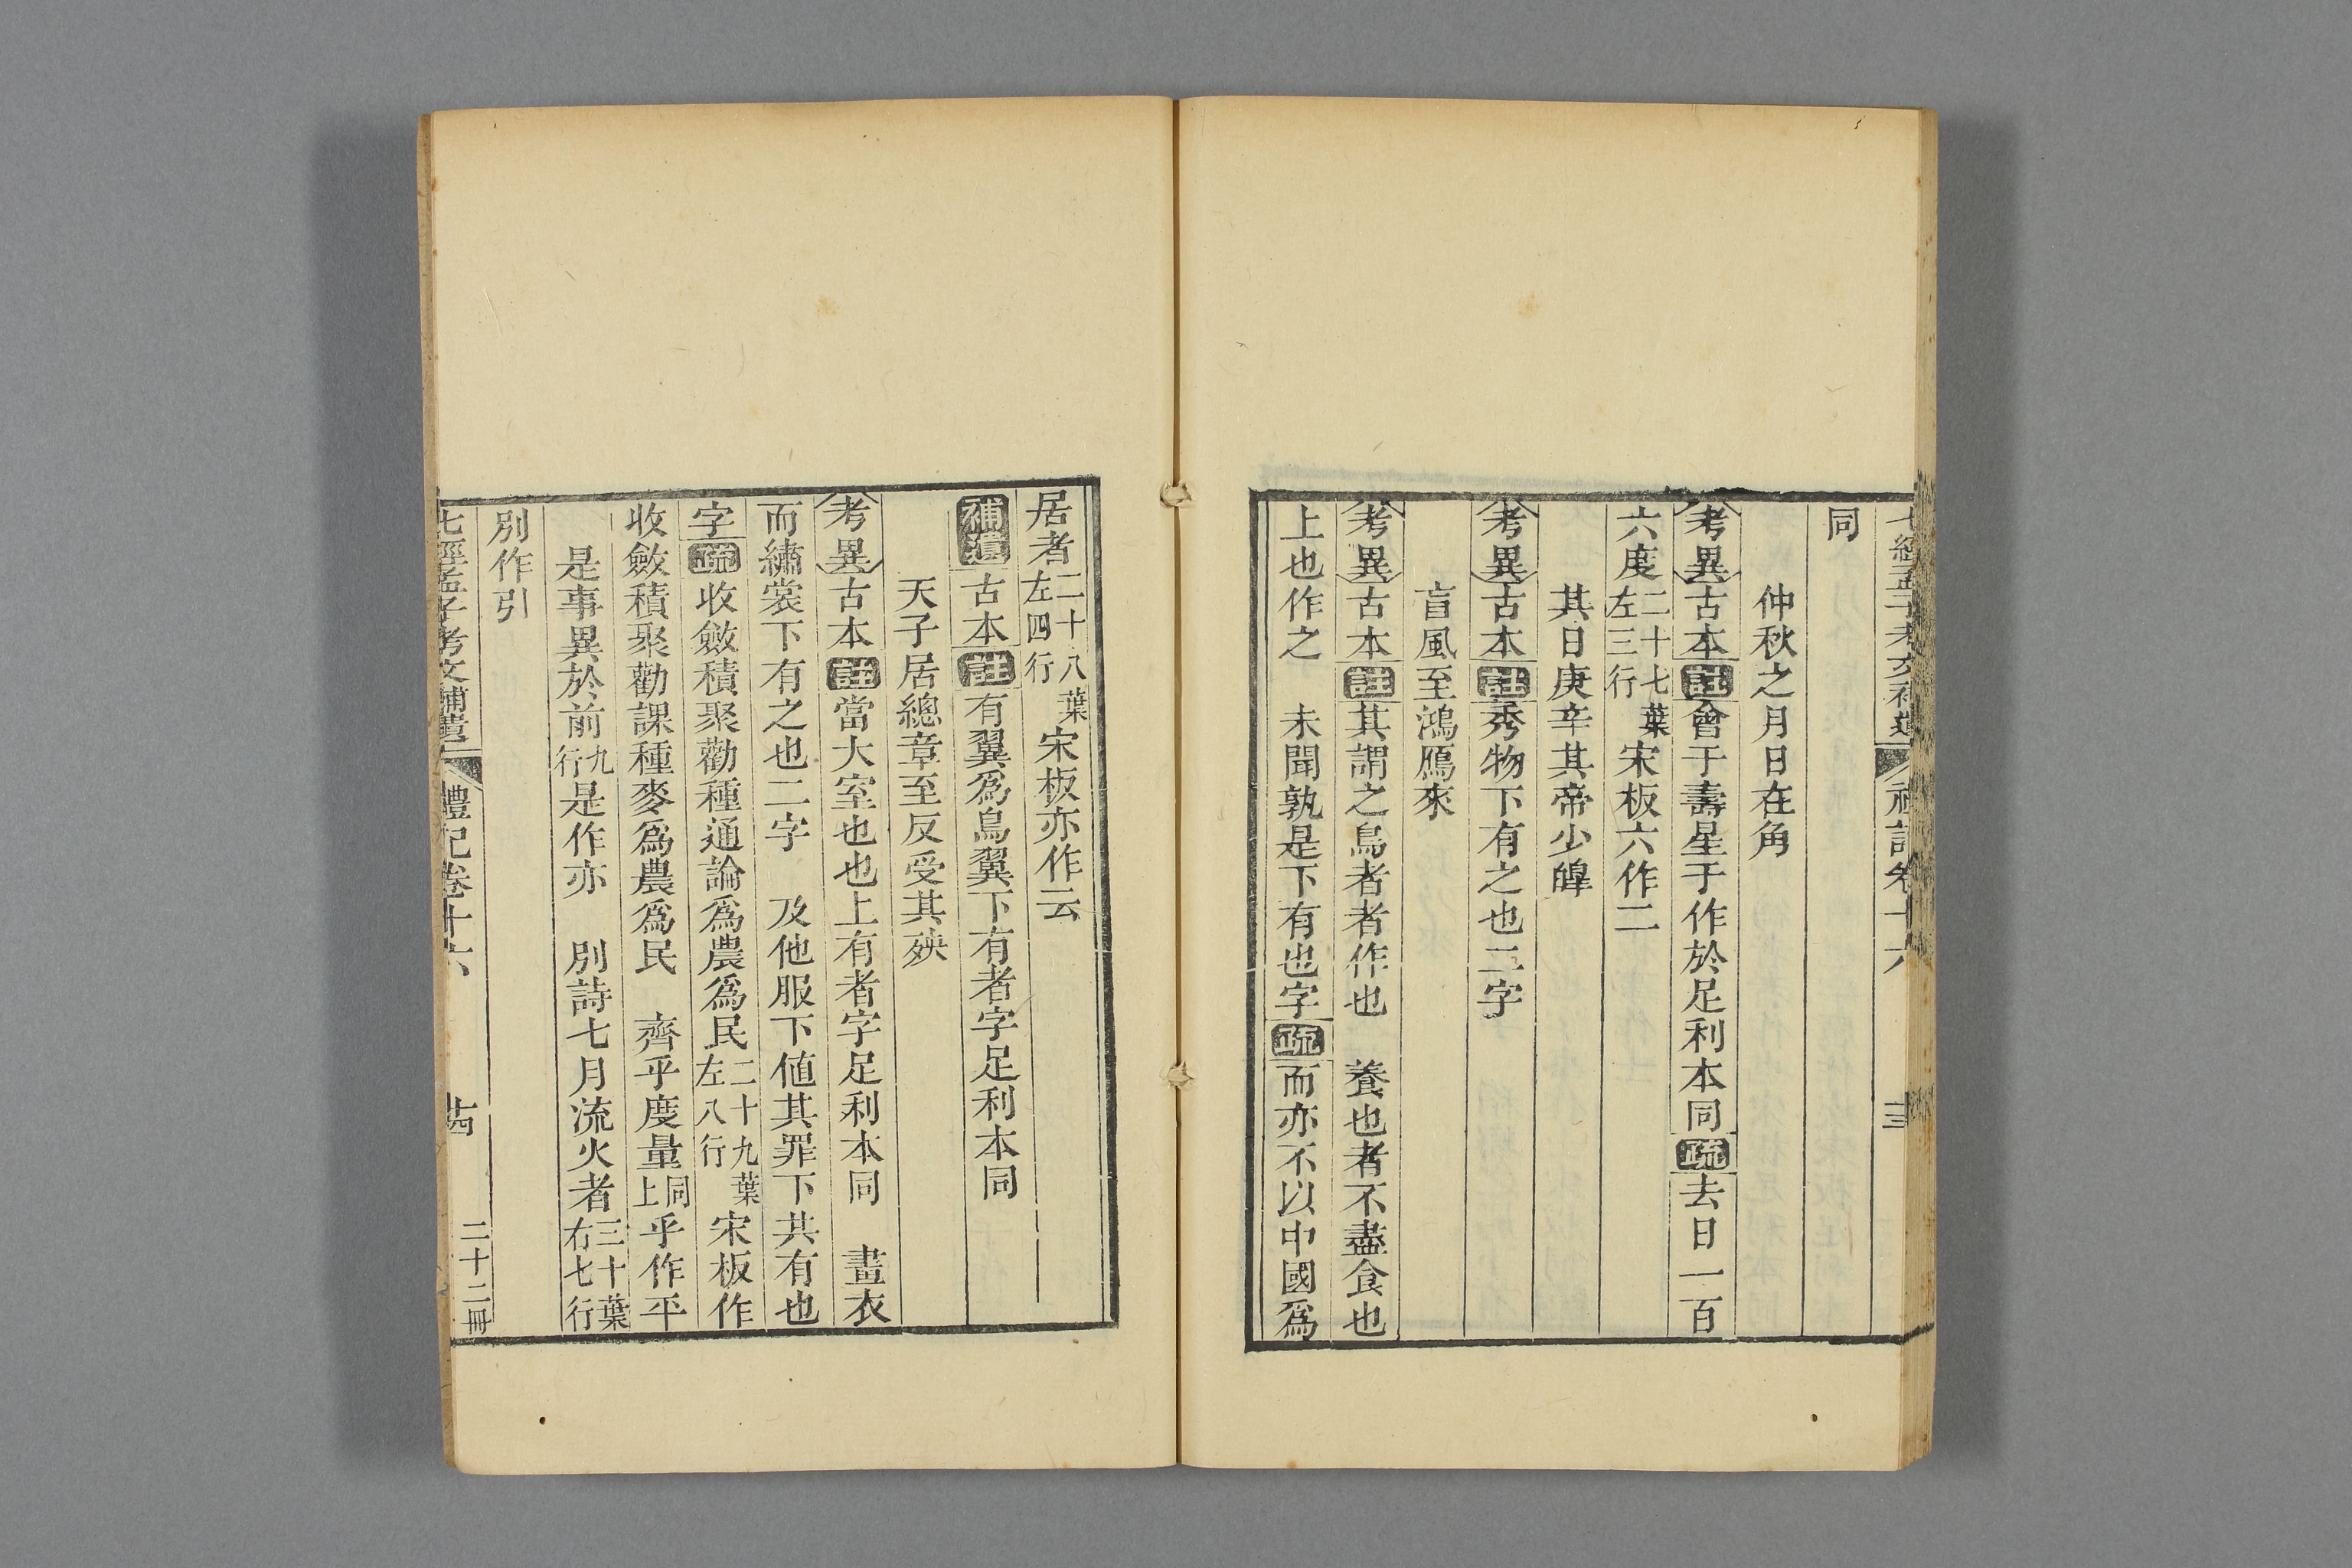 七經孟子考文補遺 禮記卷十六 十三
同
仲秋之月日在角
考異古本註會于壽星于作於足利本同疏去日一百
六度二十七葉左三行宋板六作二
其日庚辛其帝少皡
考異古本註秀物下有之也二字
盲風至鴻鴈來
考異古本註其謂之鳥者者作也 養也者不盡食也
上也作之 未聞孰是下有也字疏而亦不以中國爲
居者二十八葉左四行宋板亦作云
補遺古本註有翼爲鳥翼下有者字足利本同
天子居總章至反受其殃
考異古本註當大室也也上有者字足利本同 畫衣
而繡裳下有之也二字 及他服下値其罪下共有也
字疏收斂積聚勸種通論爲農爲民二十九葉左八行宋板作
收斂積聚勸課種麥爲農爲民 齊乎度量同上乎作平
是事異於前九行是作亦 別詩七月流火者三十葉右七行
別作引
七經孟子考文補遺 禮記卷十六 十四 二十二冊